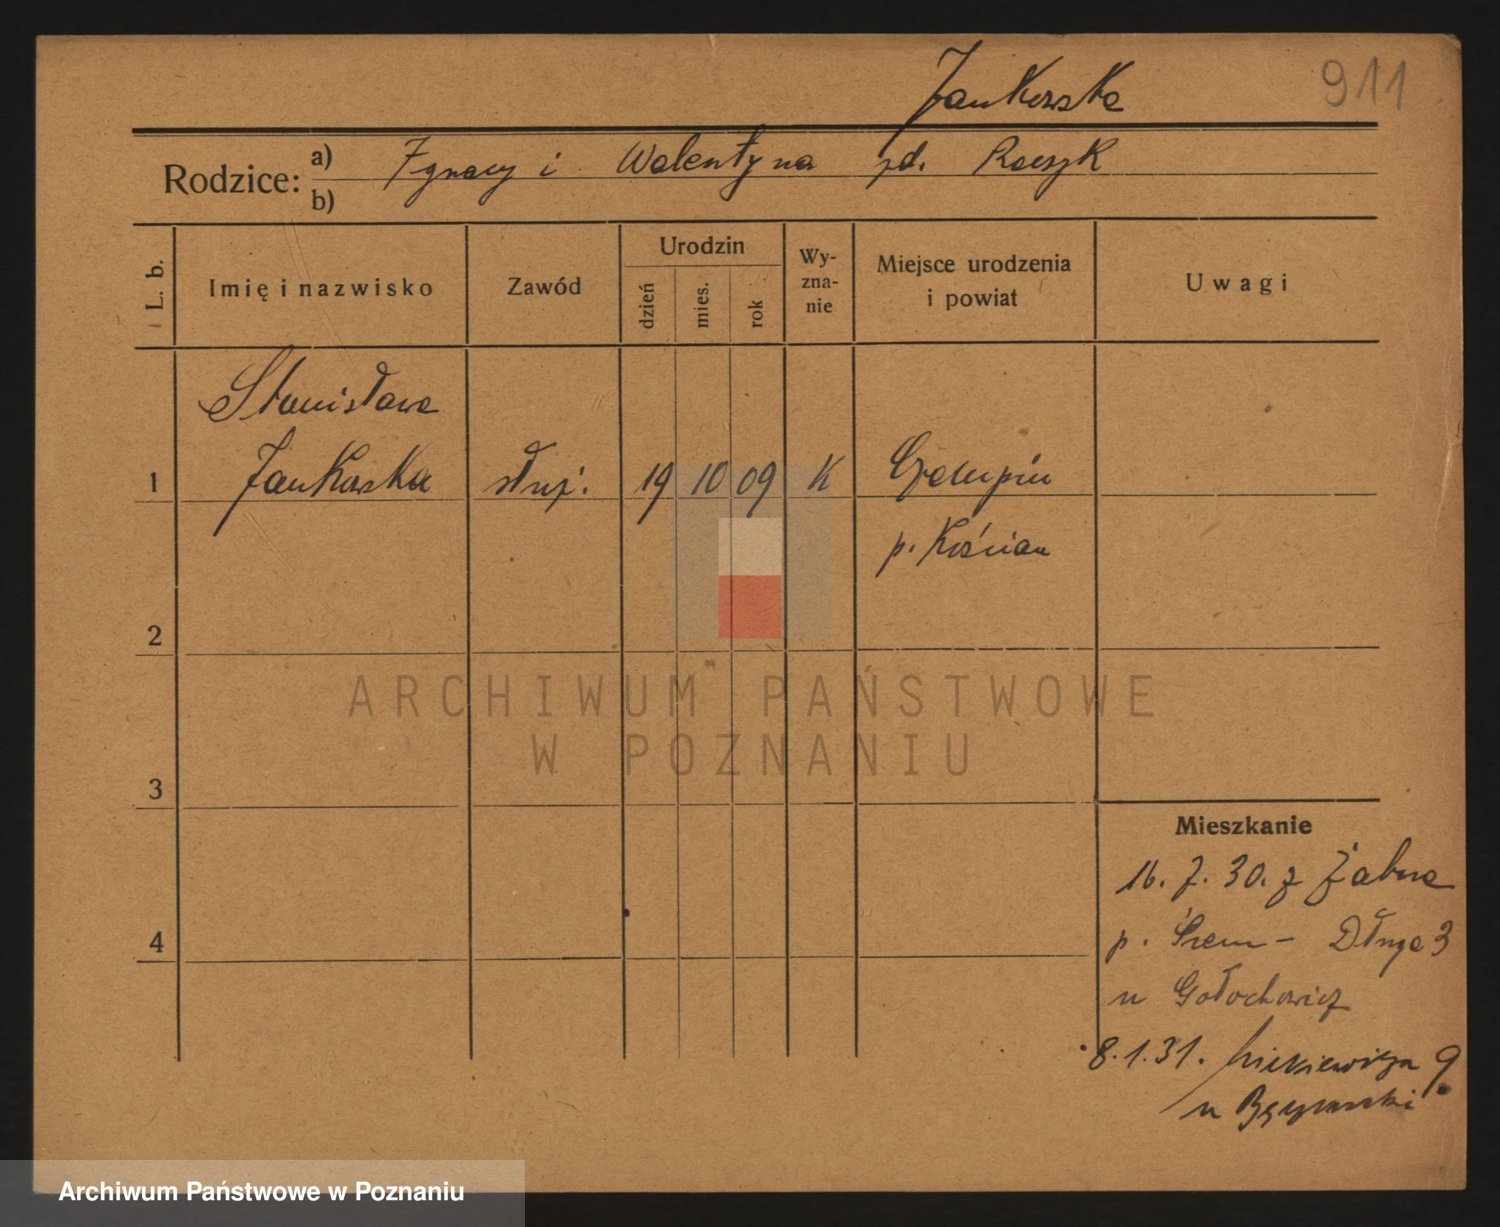 Jankowska
911
Rodzice: a) Ignacy i Walentyna zd. Raszyk
b)
L. b.
Imię i nazwisko
Zawód
Urodzin
dzień
mies.
rok
Wy-
zna-
nie
Miejsce urodzenia
i powiat
Uwagi
Stanisława
1 Jankowska służ. 19 10 09 K Czempiń
p. Kościan
2
ARCHIWUM PAŃSTWOWE
W POZNANIU
3
Mieszkanie
16. 7. 30. z Żabna
p. Śrem - Długa 3
u Gołochowicz
4
8.1.31. Mickiewicza 9
u
Archiwum Państwowe w Poznaniu